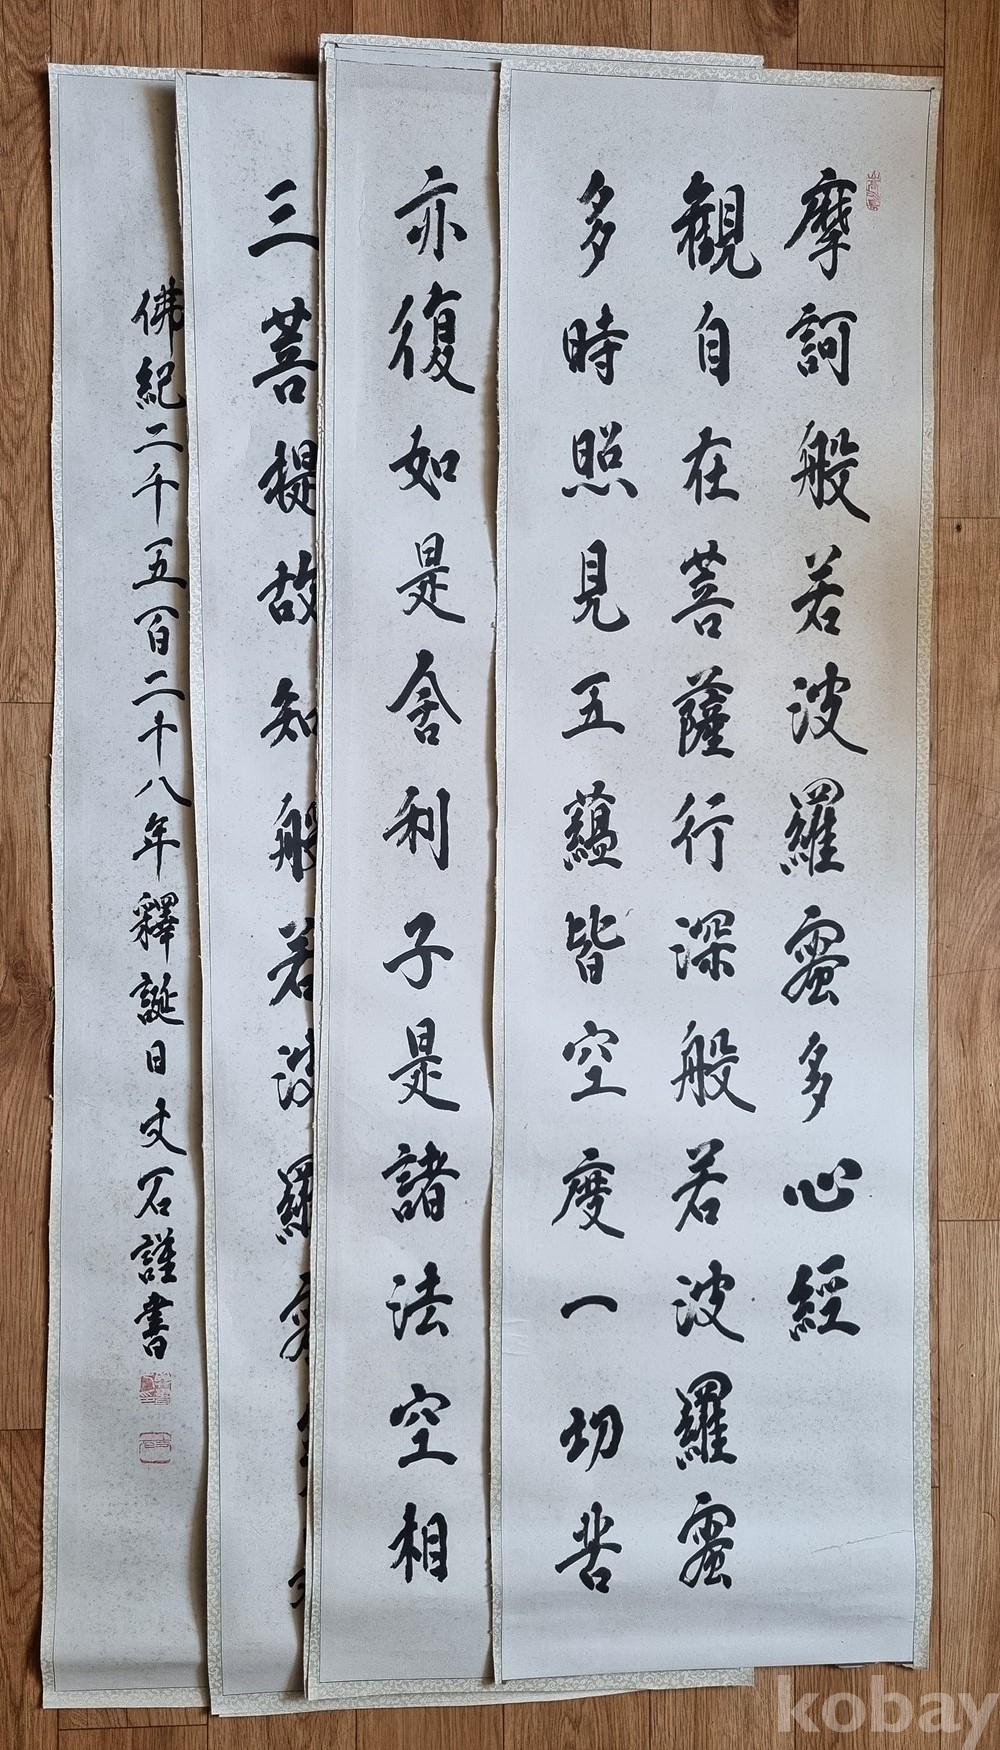 摩訶般若波羅蜜多心經
觀自在菩薩行深般若波羅蜜
多時照見五蘊皆空度一切苦
亦復如是舍利子是諸法空相
三菩提故知般若波羅蜜
佛紀二千五百二十八年釋誕日丈石謹書
kobay